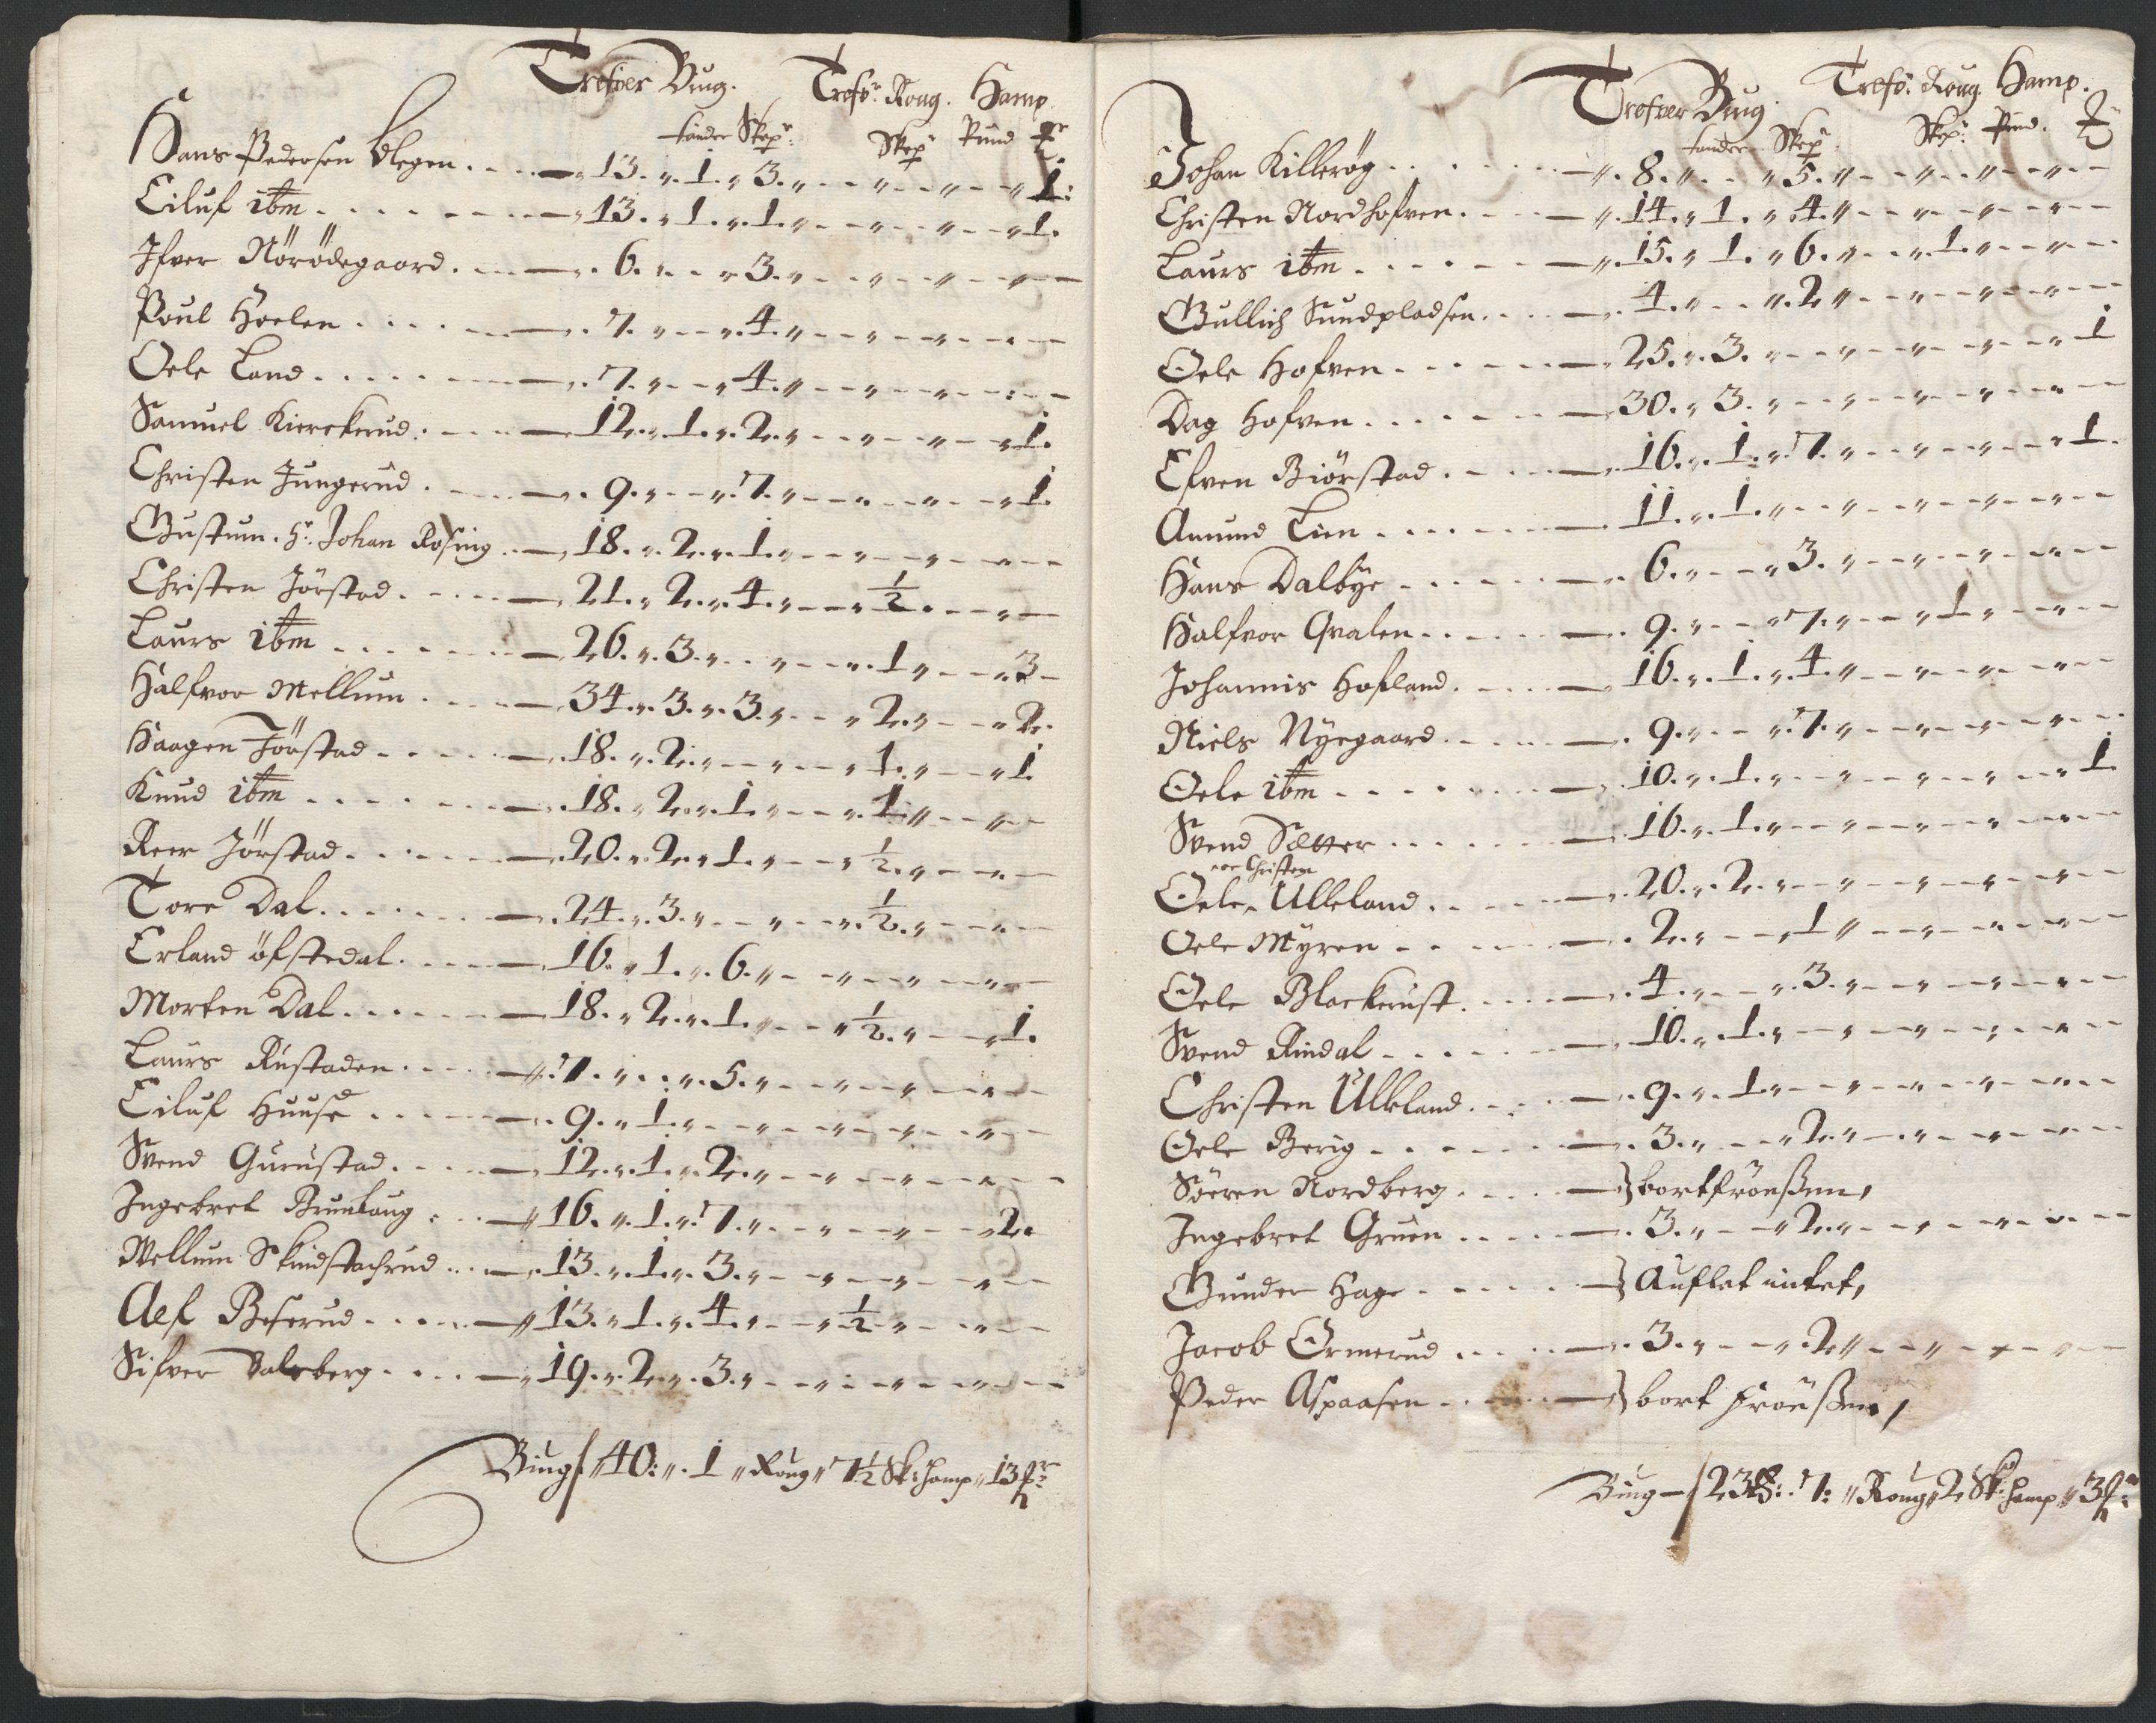 Trefver Bug. Trefv: Roug. Hamp.
tønder Skep: Skep Pund
Hans Pedersen Olegen . . . 13. 1. 3. 1.
Eiluf ibm . . . 13. 1. 1. 1.
Ifver Nörödegaard . . . 6. 3.
Poul Hoelen . . . 7. 4.
Oele Land . . . 7. 4.
Samuel Kierckerud . . . 12. 1. 2. 1.
Christen Jungerud . . . 9. 7. 1.
Gustum. Hr. Johan Rosing . . 18. 2. 1.
Christen Jörstad . . . 21. 2. 4. ½
Laurs ibm . . . 26. 3. 1 3
Halfvor Mellum . . . 34. 3. 3. 2. 2.
Haagen Jörstad . . . 18. 2. 1. 1.
Knud ibm . . . 18. 2. 1. 1
Reer Jörstad . . . 20. 2. 1. ½
Tore Dal . . . 24. 3. ½.
Erland öfstedal . . . 16. 1. 6.
Morten Dal . . . 18. 2. 1. ½. 1.
Laurs Rustaden . . . 7. 5.
Eiluf Huuse . . . 9. 1.
Svend Gurustad . . . 12. 1. 2.
Ingebret Brunlaug . . 16. 1. 7. 2.
Mellum Skindstachrud . . . 13. 1. 3.
Alf Beserud . . . 13. 1. 4. ½
Sifver Valsberg . . . 19. 2. 3.
Biug 40: 1 Roug 7½ Sk: Hamp 13
Trefver Bug. Trefv: Roug Hamp.
tønder Skep Skep: Pund.
Johan Killerög . . . 8. 5.
Christen Nordhofven . . . 14. 1. 4.
Laurs ibm . . . 15. 1. 6. 1.
Gullich Sundpladsen . . . 4. 2
Oele Hofven . . . 25. 3. 1
Dag Hofven . . . 30. 3.
Efven Biörstad . . . 16. 1. 7. 1.
Amund Lien . . . 11. 1.
Hans Dalbye . . . 6. 3.
Halfvor Qvalen . . . 9. 7. 1
Johannis Hofland . . . 16. 1. 4.
Niels Nyegaard . . . 9. 7.
Oele ibm . . . 10. 1. 1.
Svend Sætter . . . 16. 1.
Christen
Oele Ulleland . . . 20. 2.
Oele Myren . . . 2. 1
Oele Blackerust . . . 4. 3.
Svend Rindal . . . 10. 1.
Christen Ulleland . . . 9. 1.
Oele Berig . . . 3. 2.
Söeren Nordberg . . . bortfröußen,
Ingebret Gruen . . . 3. 2.
Gunder Hage . . . Auflet intet,
Jacob Ormerud . . . 3. 2
Peder Aspaasen . . . bort fröußen,
Biug 238: 7: Roug 2 Sk: Hamp 3